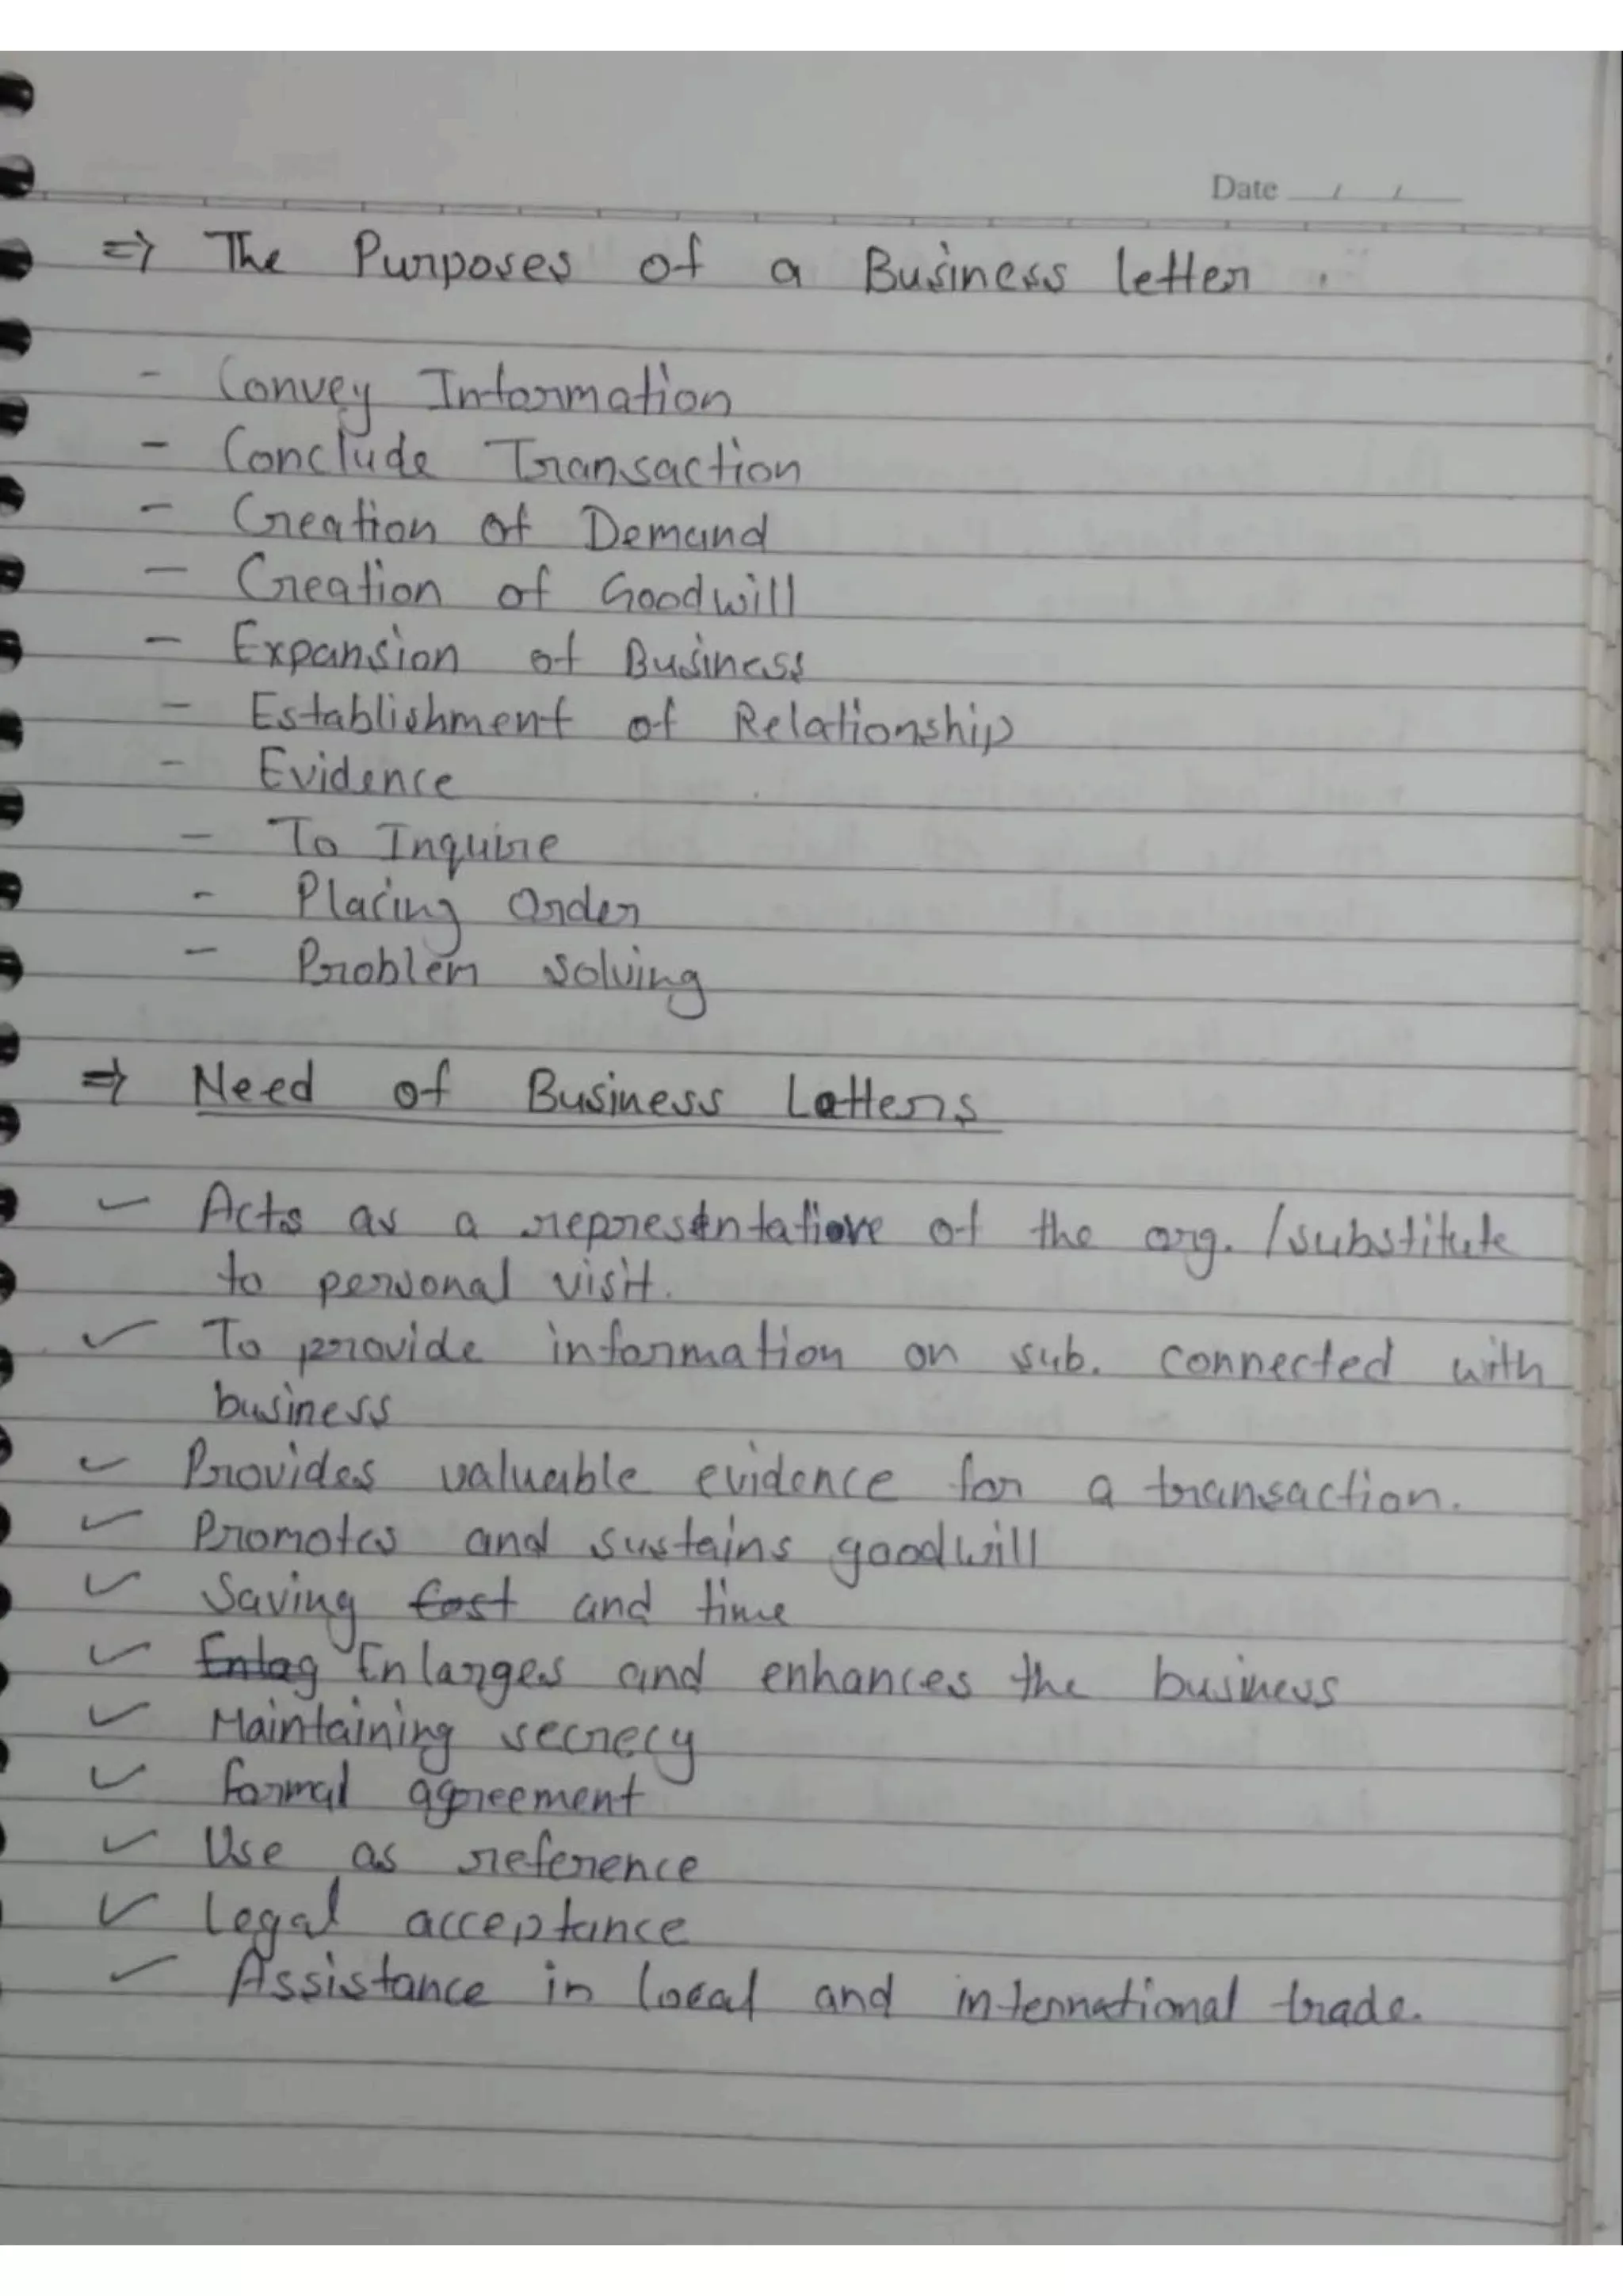 Date / /
⇒ The Purposes of a Business letter.
- Convey Information
- Conclude Transaction
- Creation of Demand
- Creation of Goodwill
- Expansion of Business
- Establishment of Relationship
- Evidence
- To Inquire
- Placing Order
- Problem solving
⇒ Need of Business Letters
✓ Acts as a representative of the org. /substitute
to personal visit.
✓ To provide information on sub. connected with
business
✓ Provides valuable evidence for a transaction.
✓ Promotes and sustains goodwill
✓ Saving cost and time
✓ Entag Enlarges and enhances the business
✓ Maintaining secrecy
✓ formal agreement
✓ Use as reference
✓ Legal acceptance
✓ Assistance in local and international trade.